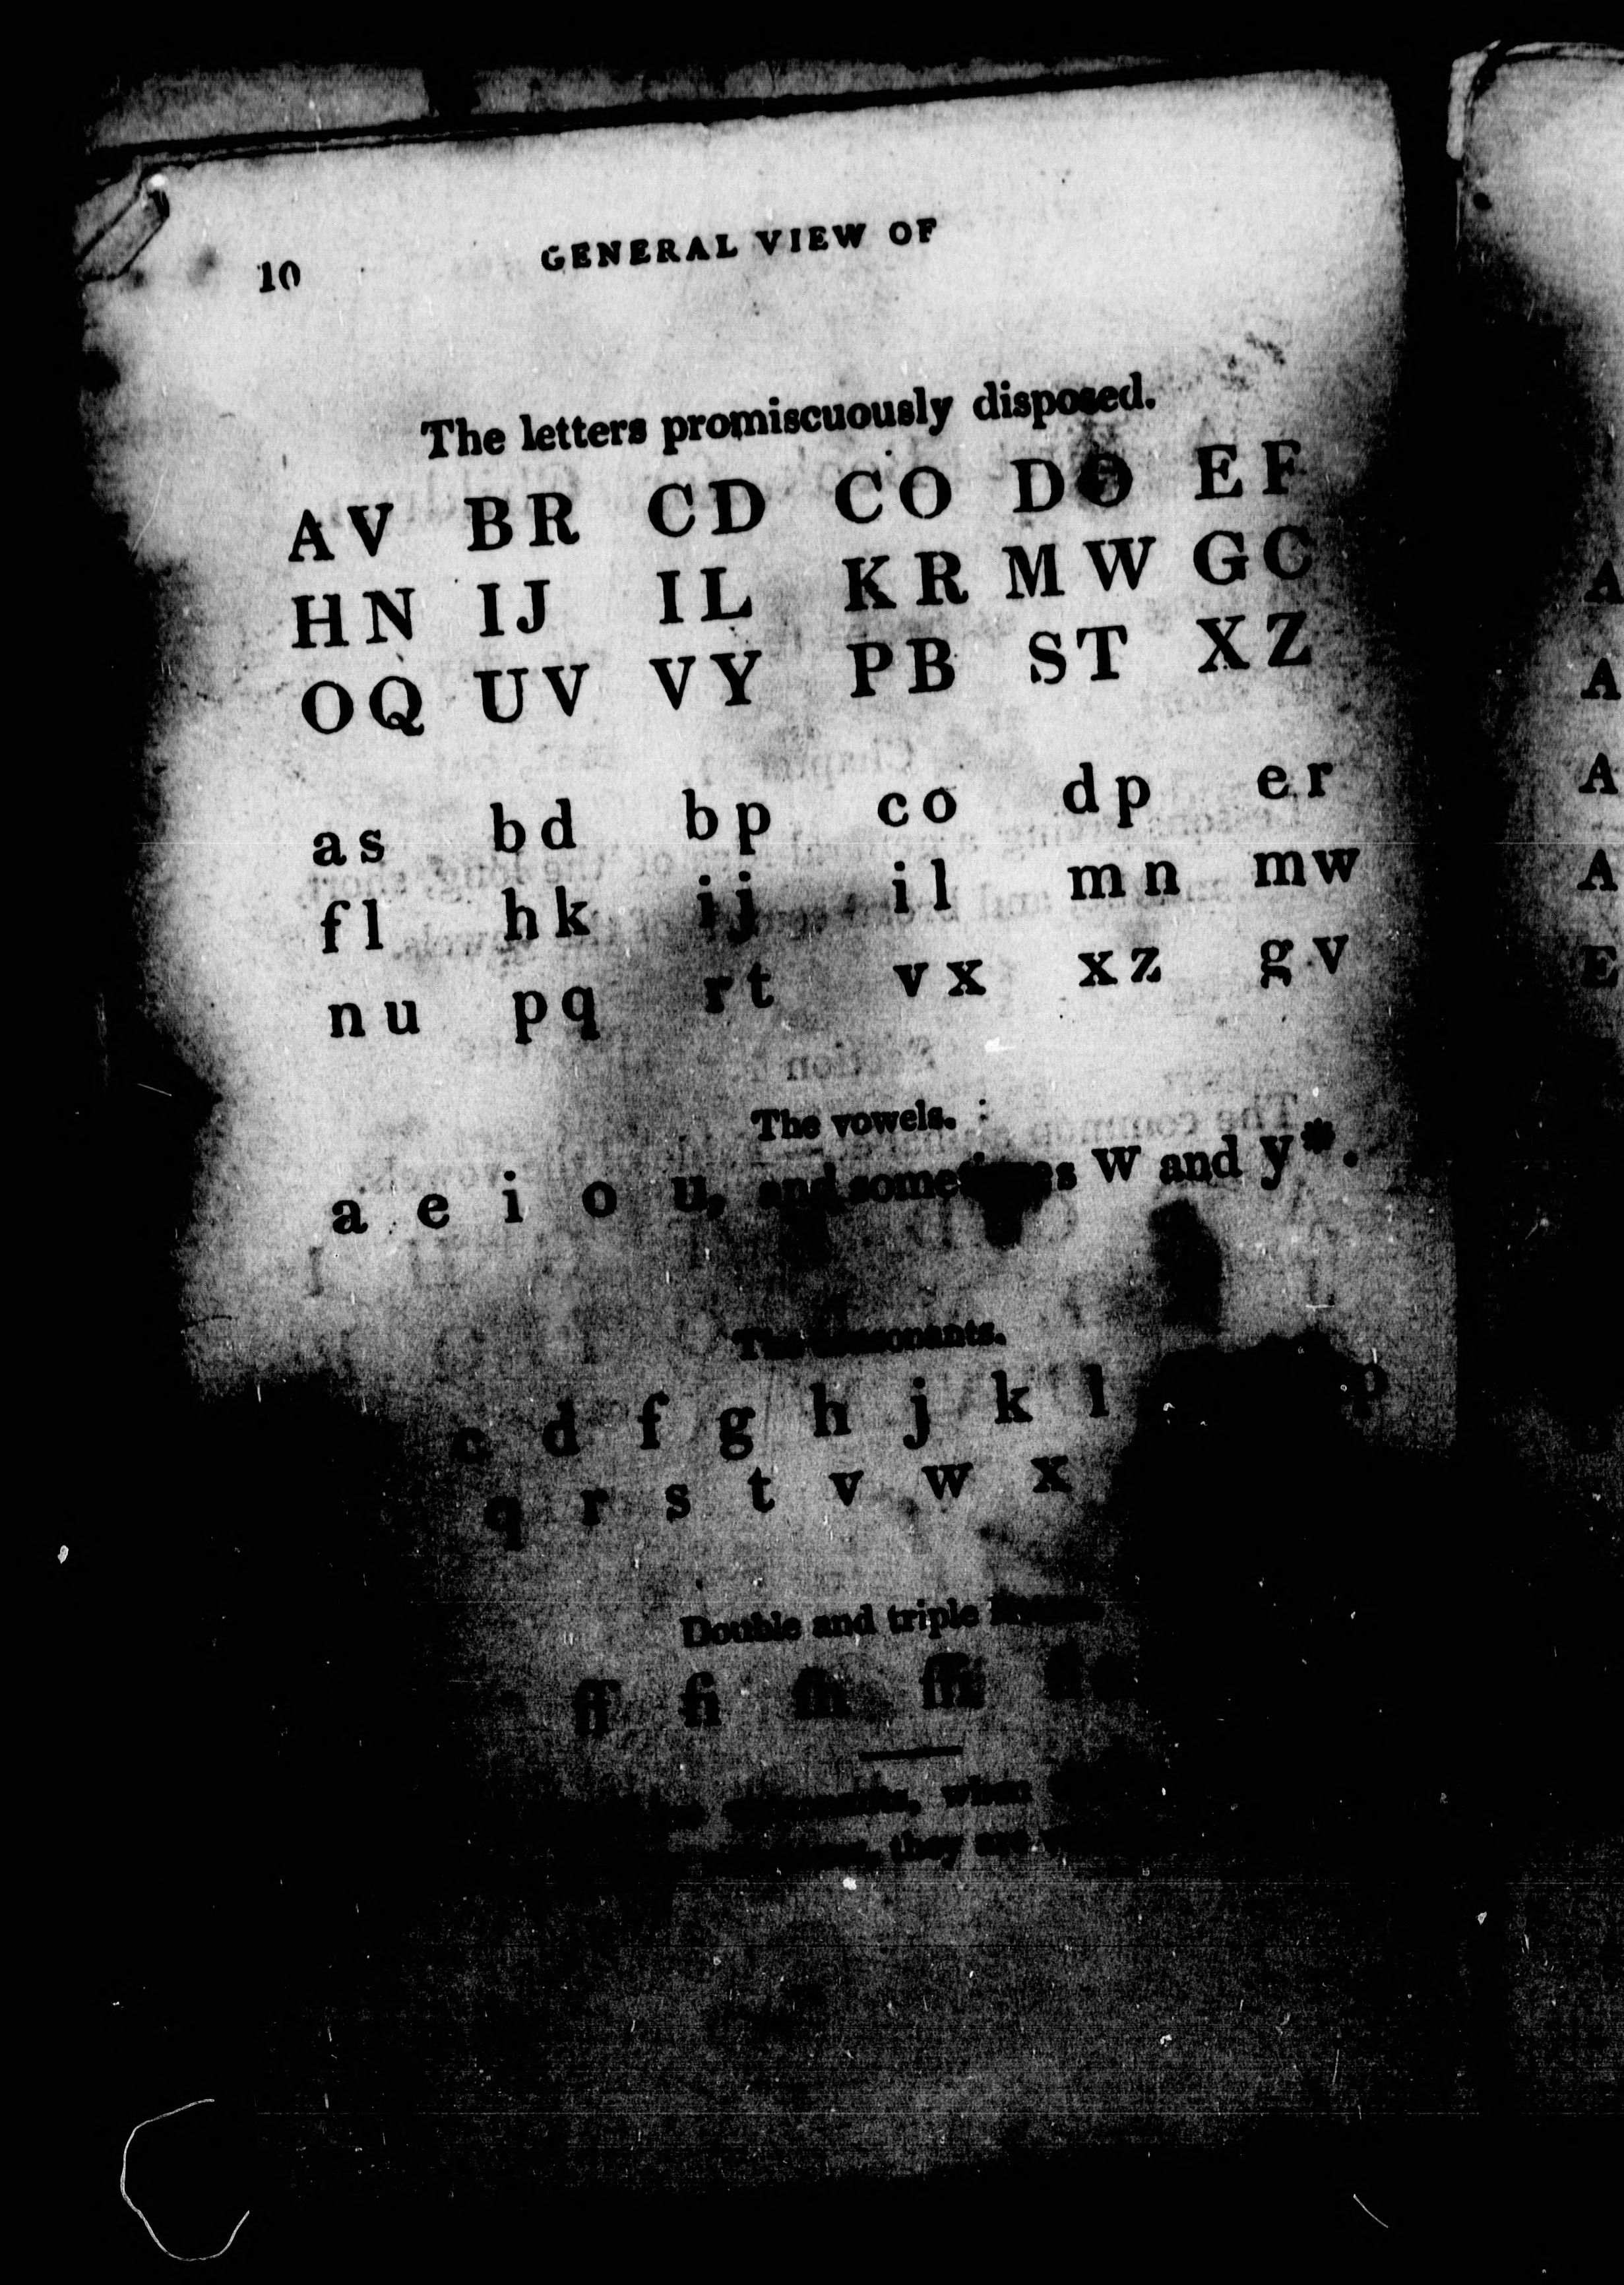 10 GENERAL VIEW OF
The letters promiscuously disposed.
A V B R C D C O D O E F
H N I J I L K R M W G C
O Q U V V Y P B S T X Z
a s b d b p c o d p e r
f l h k i j i l m n m w
n u p q r t v x x z g v
The vowels.
a e i o u, and sometimes w and y*.
The consonants.
c d f g h j k l p
q r s t v w x
Double and triple
ff fi ffi
when
they are
A
A
A
A
E